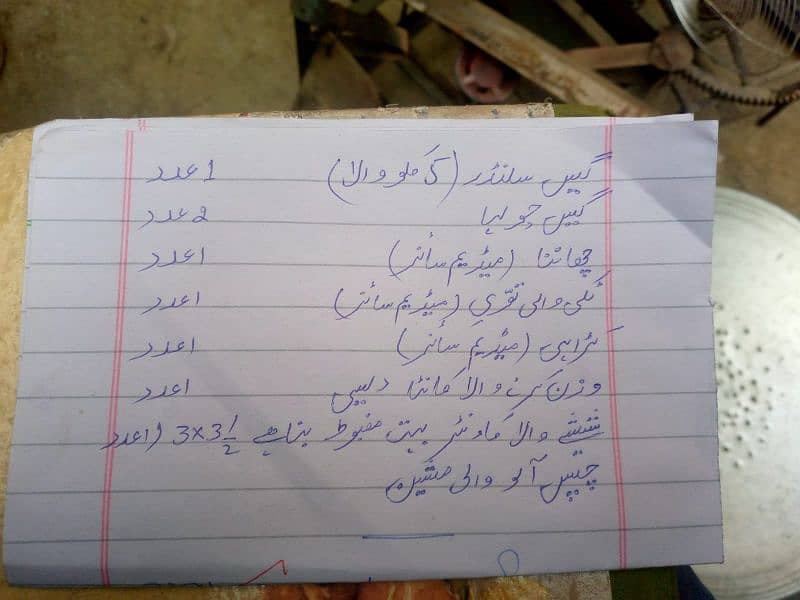 گیس سلنڈر (کلو والا) 1 عدد
گیس چولہا 2 عدد
چھاننا (میڈیم سائز) 1 عدد
والی (میڈیم سائز) 1 عدد
کڑاہی (میڈیم سائز) 1 عدد
وزن کرنے والا کانٹا دیسی 1 عدد
شیشے والا کاونٹر بہت مضبوط بنا ہے 3x3 1/2 1 عدد
چپس آلو والی مشین